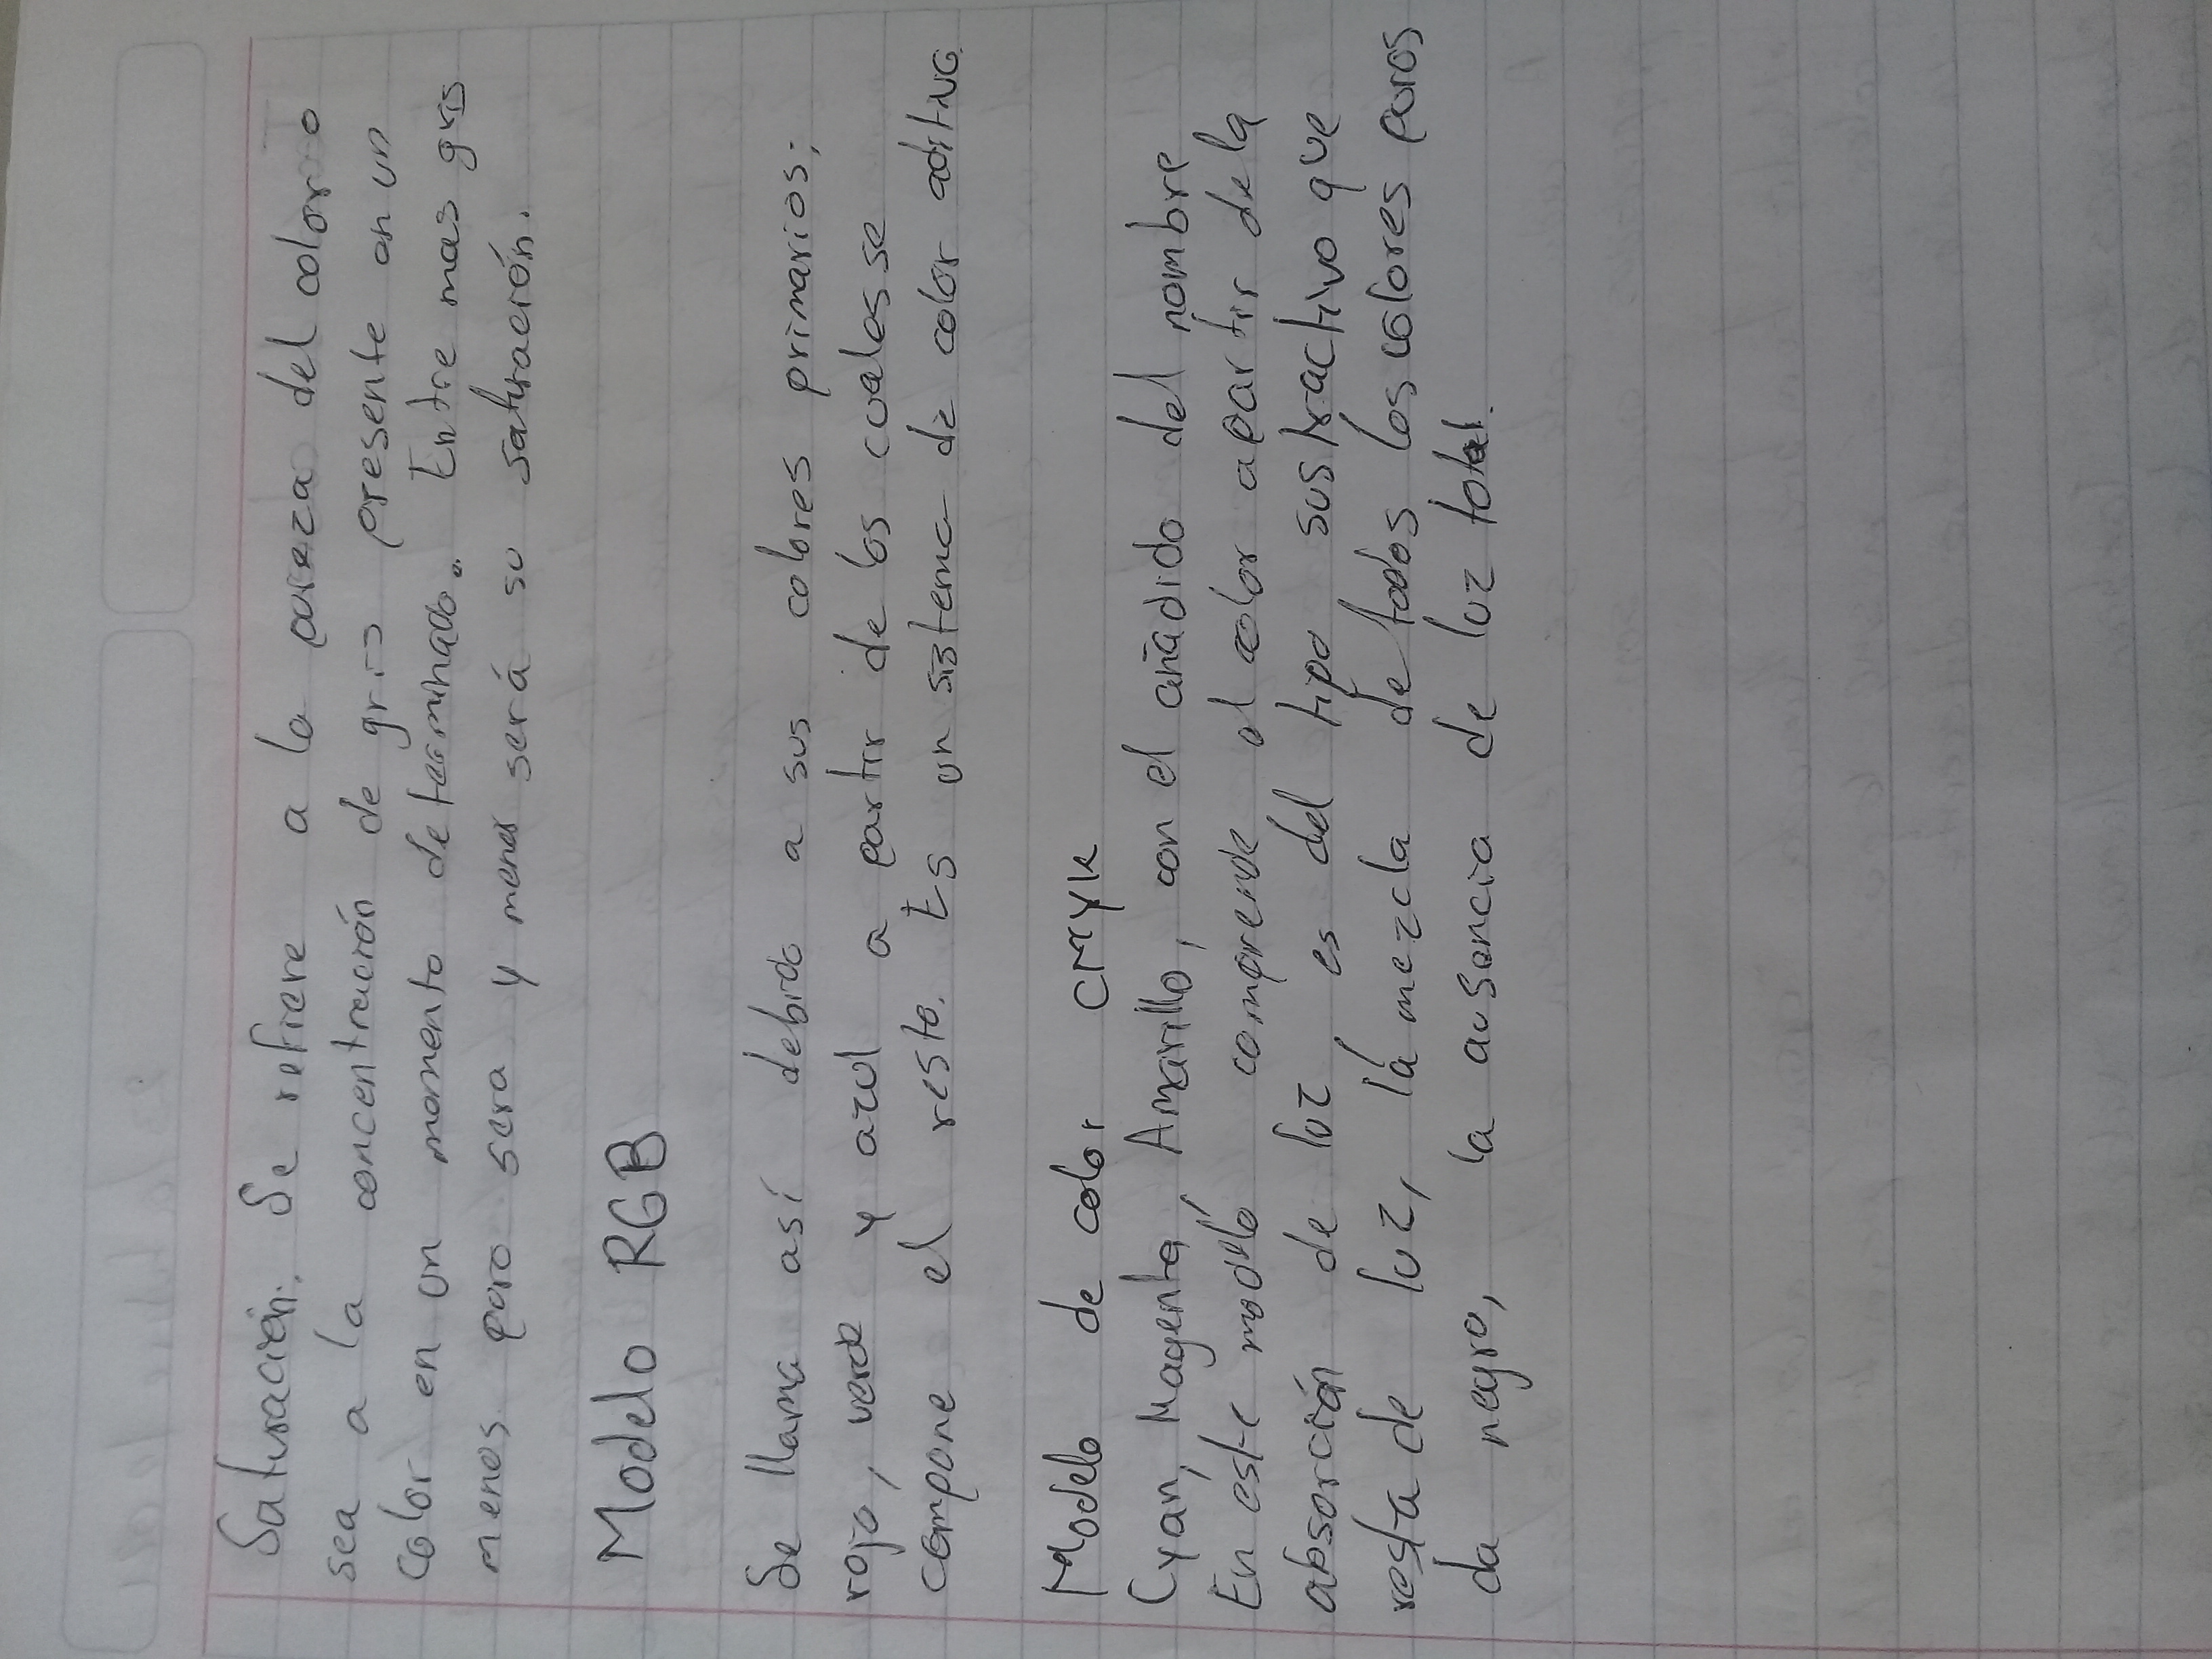 Saturación. Se refiere a la pureza del color o
sea a la concentración de gris presente en un
color en un momento determinado. Entre mas gris
menos puro sera y menor será su saturación.
Modelo RGB
Se llama así debido a sus colores primarios;
rojo, verde y azul a partir de los cuales se
compone el resto. Es un sistema de color aditivo.
Modelo de color CMYK
Cyan, Magenta, Amarillo, con el añadido del nombre
En este modelo comprende al color apartir de la
absorción de luz, es del tipo sustractivo que
resta de luz, la mezcla de todos los colores puros
da negro, la ausencia de luz total.